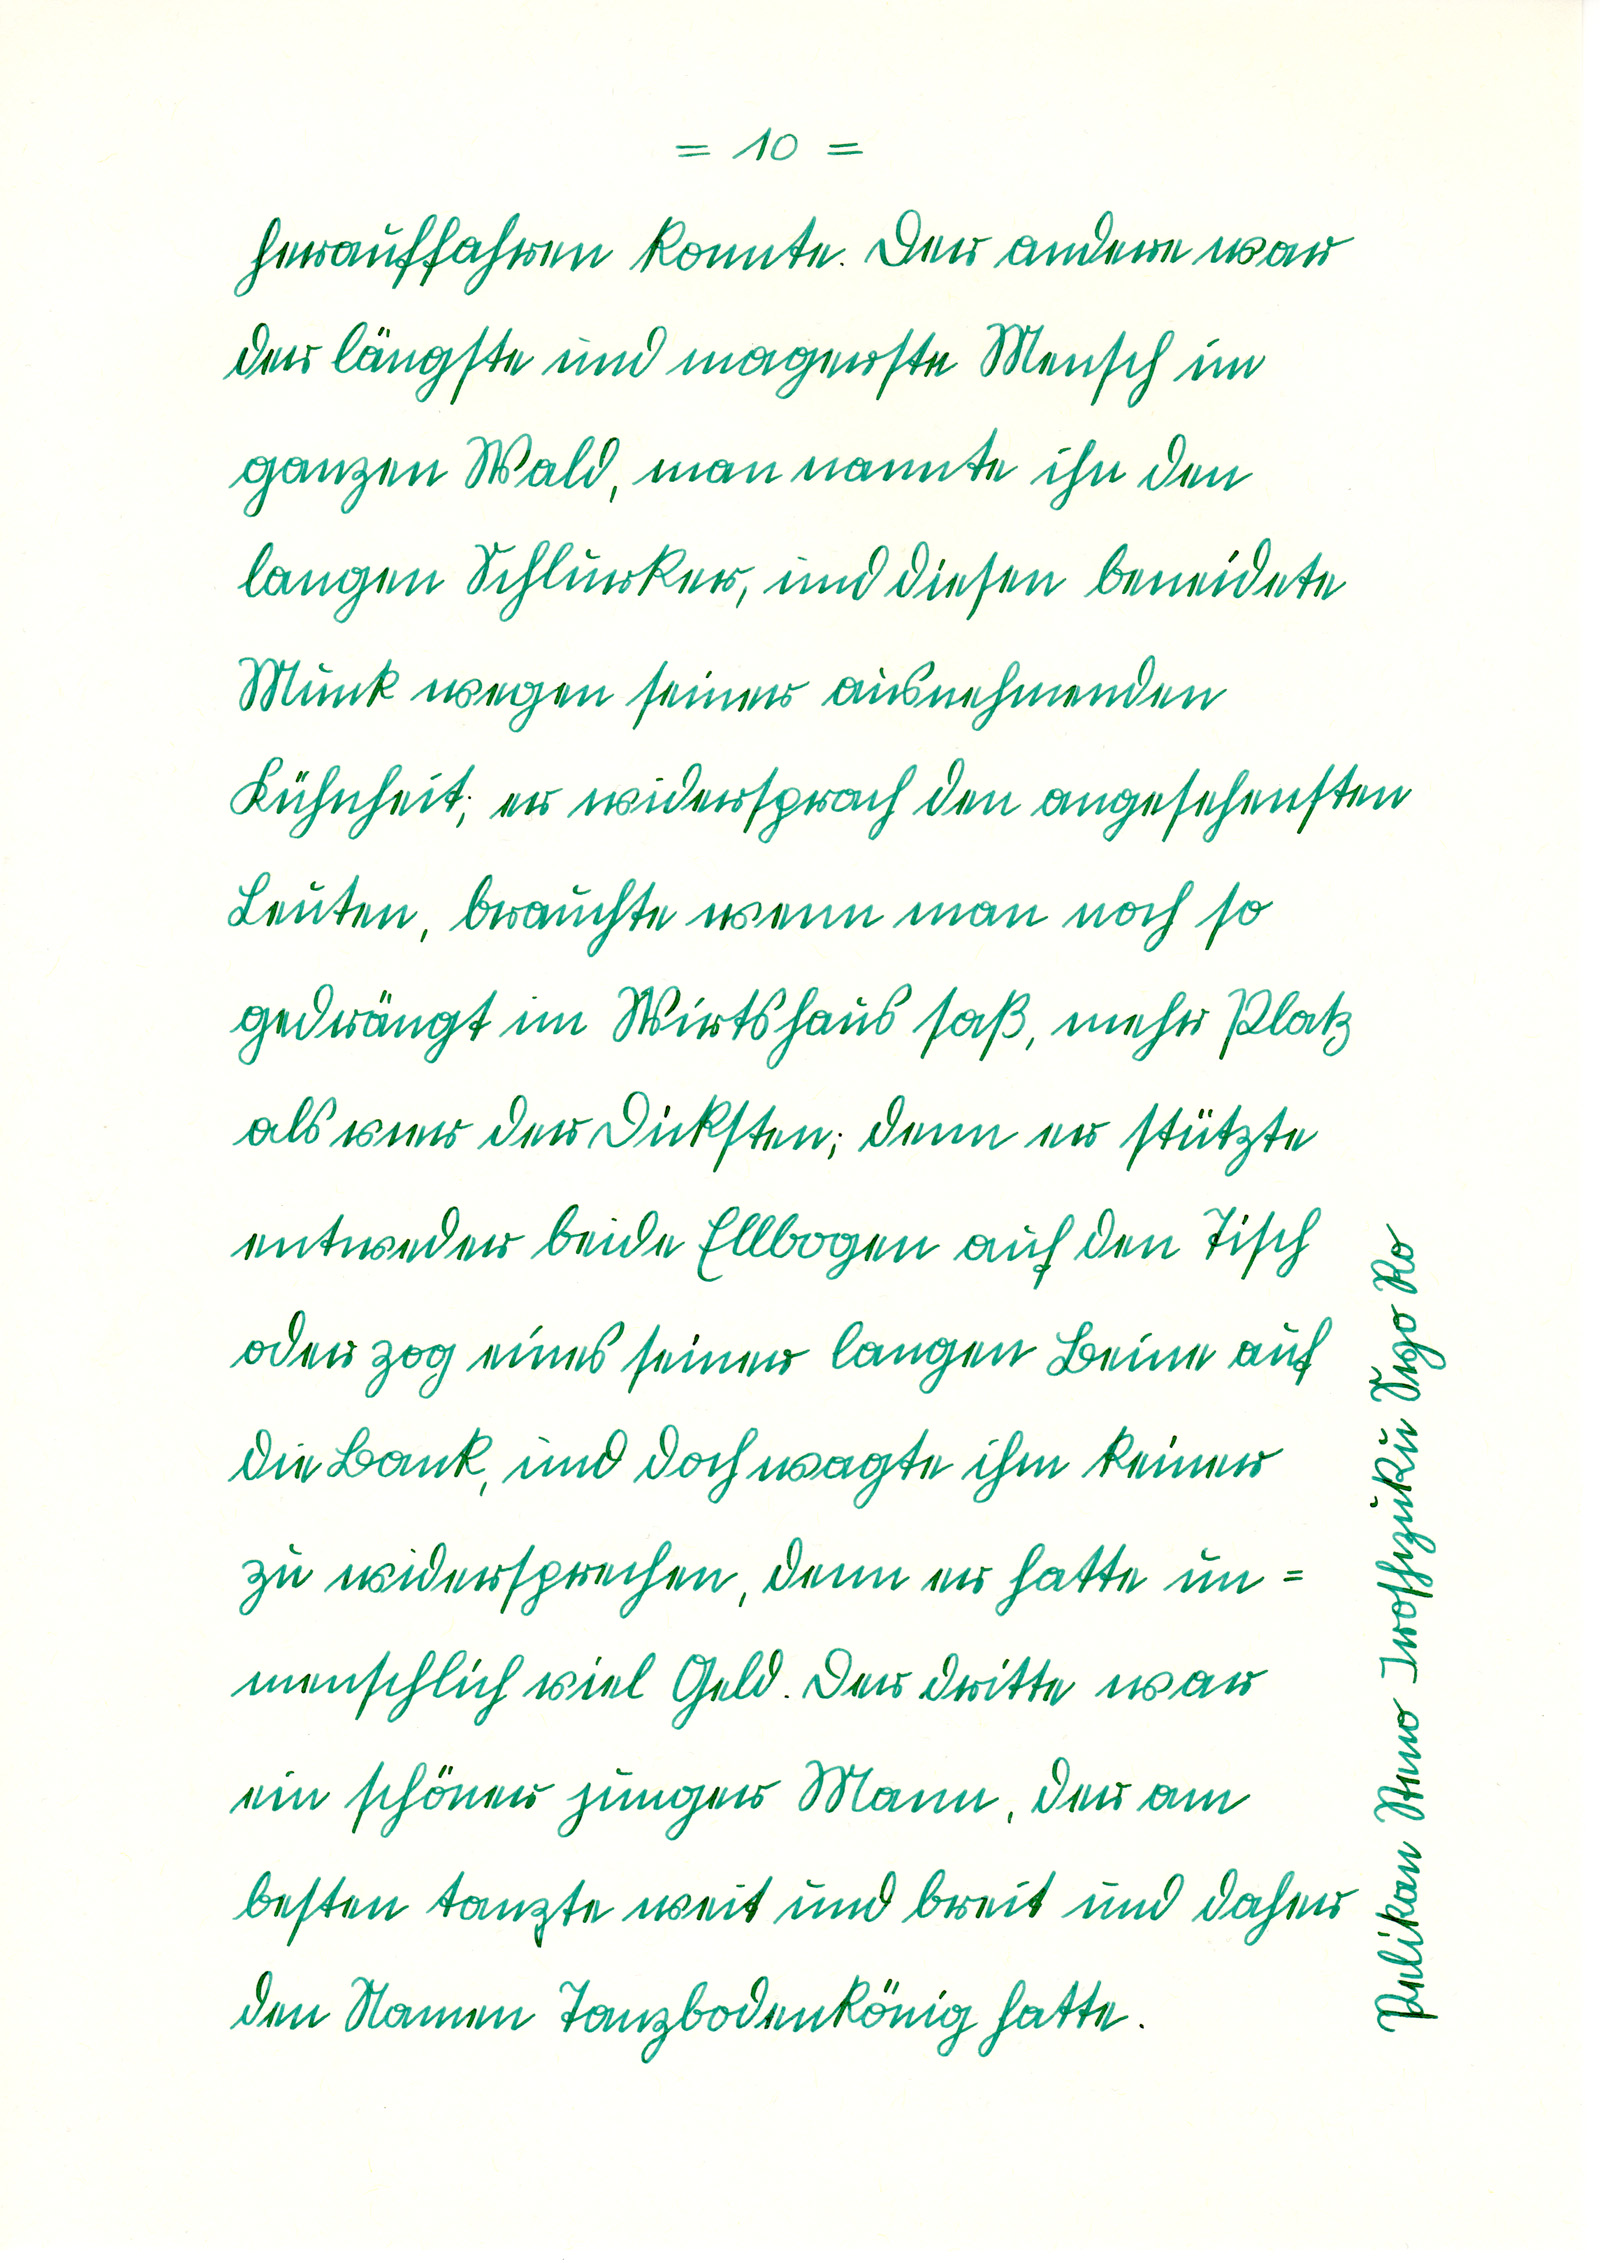 = 10 =
herauffahren konnte. Der andere war
der längste und magerste Mensch im
ganzen Wald, man nannte ihn den
langen Schlurker, und diesen beneidete
Munk wegen seiner ausnehmenden
Kühnheit; er widersprach den angesehensten
Leuten, brauchte wenn man noch so
gedrängt im Wirtshaus saß, mehr Platz
als vier der Dicksten; denn er stützte
entweder beide Ellbogen auf den Tisch
oder zog eines seiner langen Beine auf
die Bank, und doch wagte ihm keiner
zu widersprechen, denn er hatte un=
menschlich viel Geld. Der dritte war
ein schöner junger Mann, der am
besten tanzte weit und breit und daher
den Namen Tanzbodenkönig hatte.
Pelikan Steno Iroshizuku Syo Ro